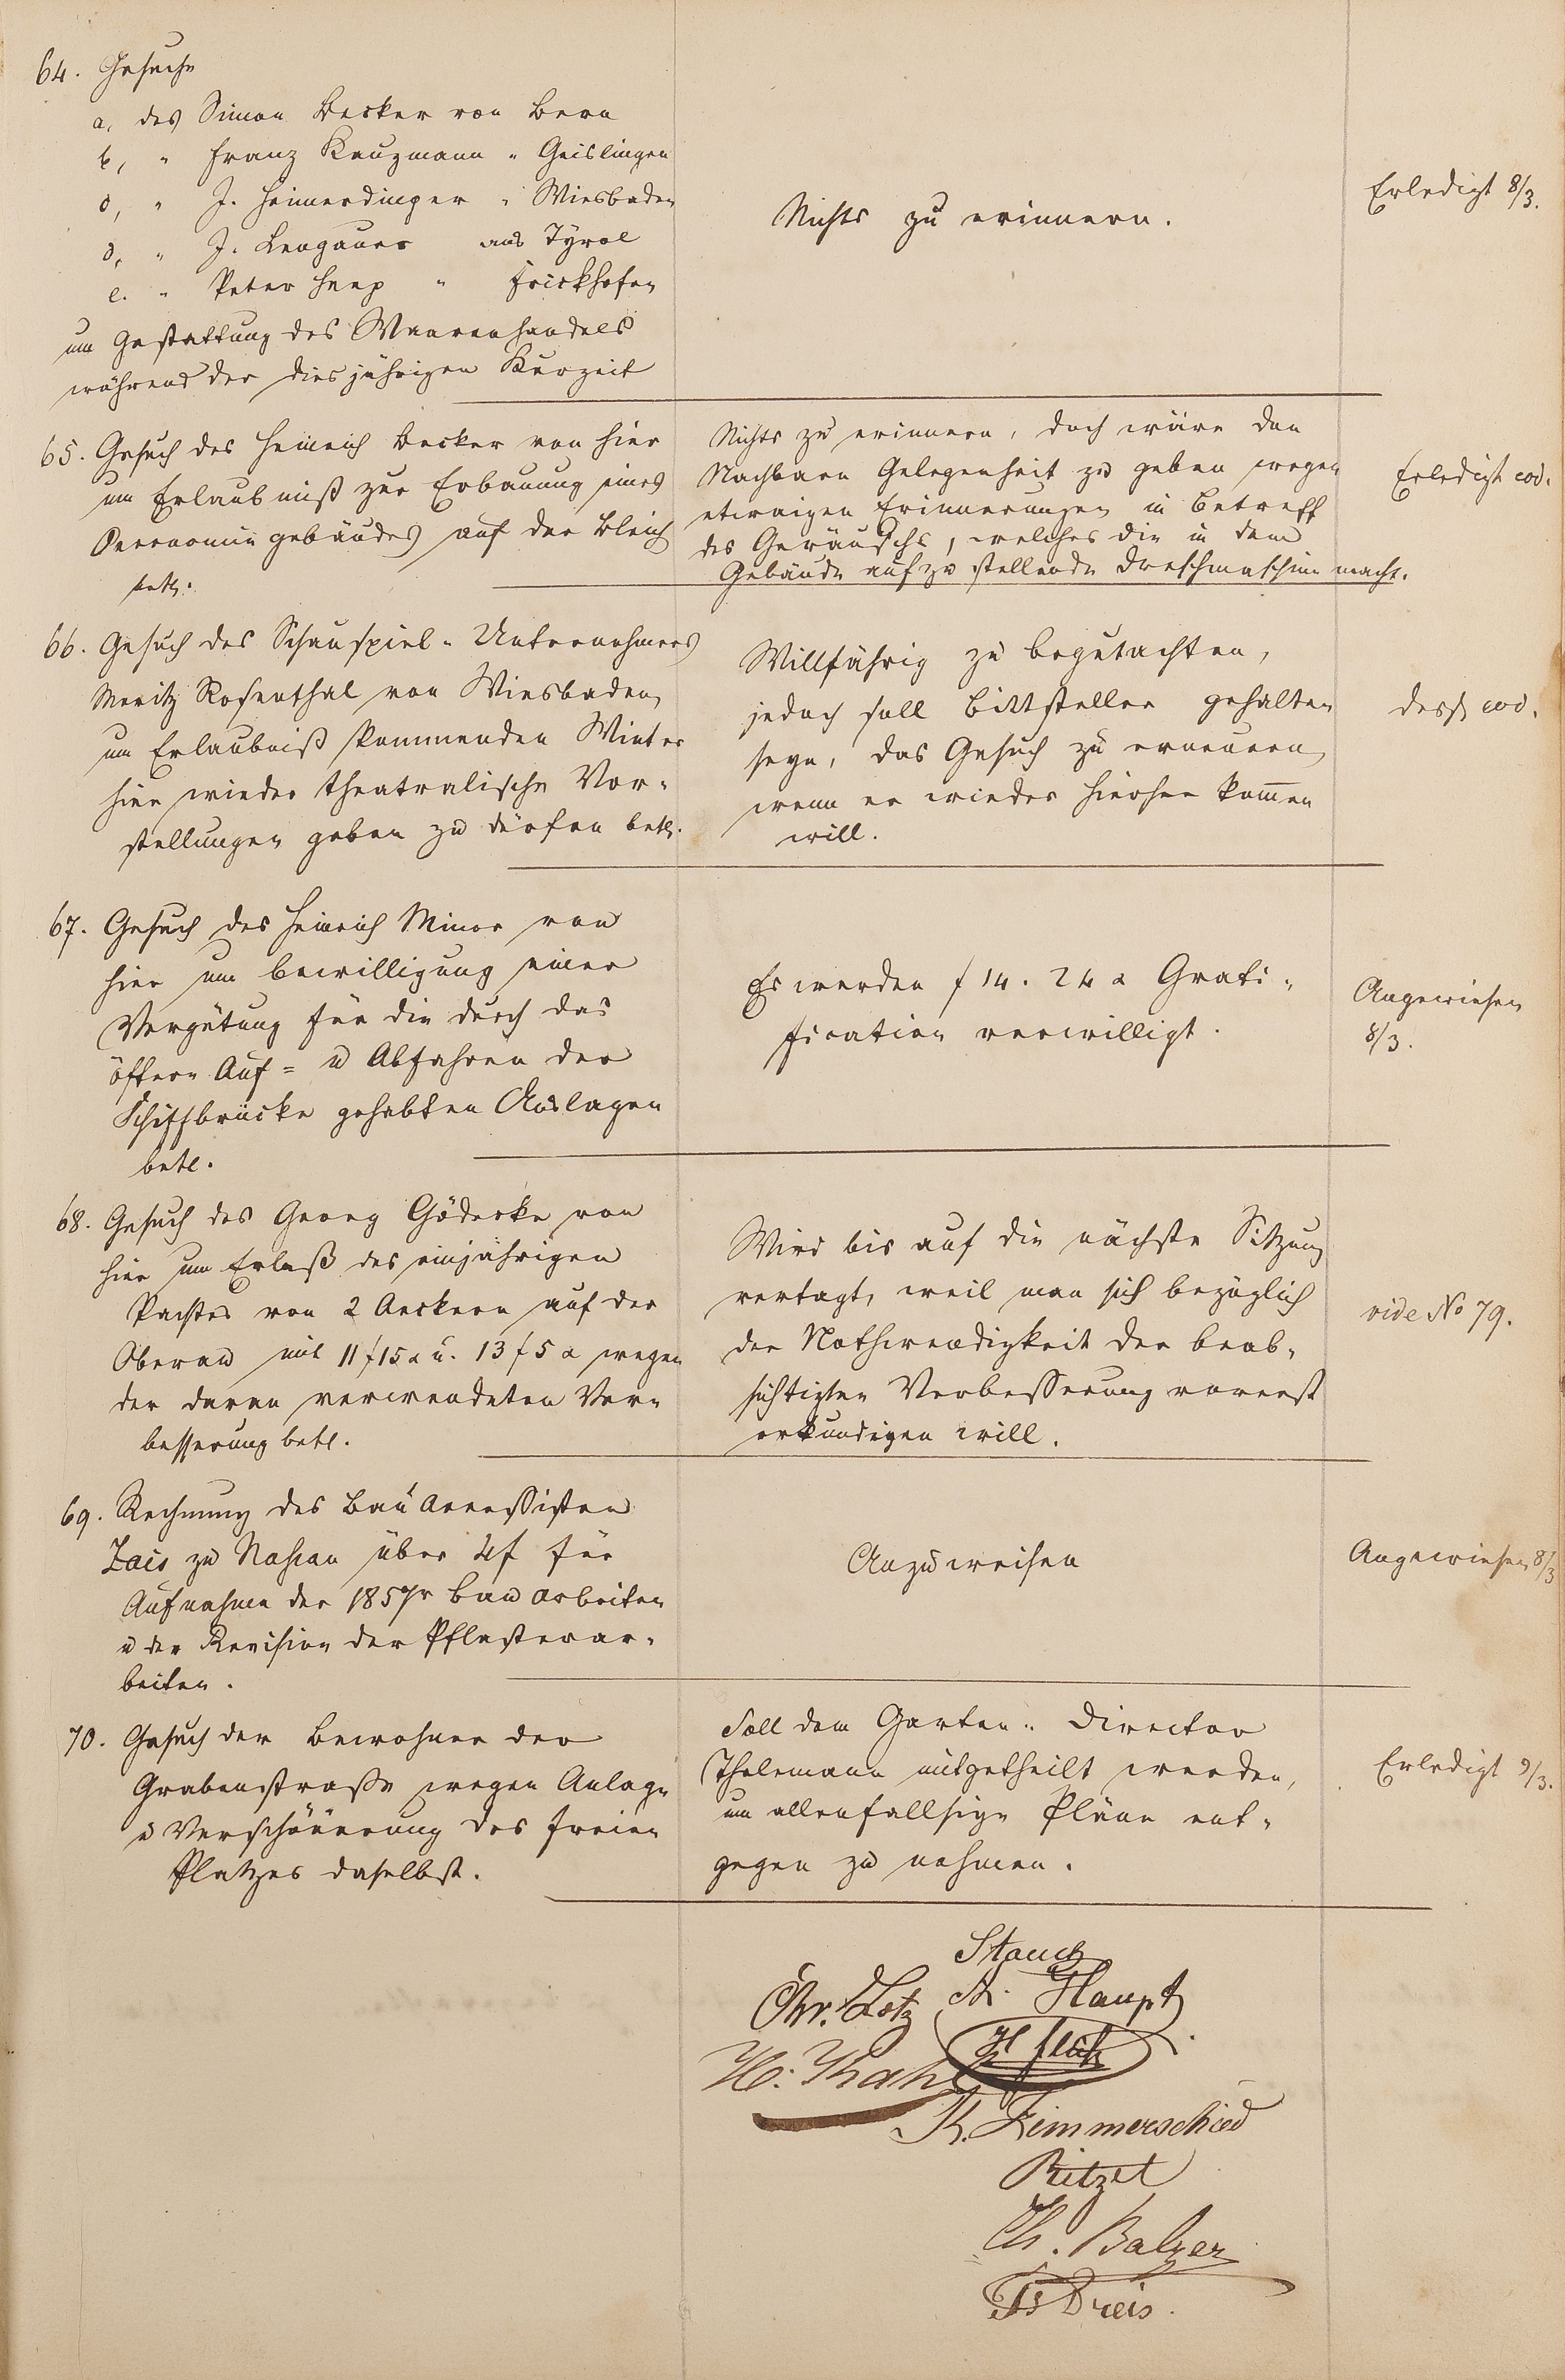 64. Gesuche
a, des Simon Becker von Bern
b, " Franz Kauzmann " Geislingen
c, " J. Heimerdinger " Wiesbaden
d, " J. Lengauer aus Tyrol
e. " Peter Heep " Frickhofen
um Gestattung des Waarenhandels
während der diesjährigen Kurzeit
Nichts zu erinnern.
Erledigt 8/3.
65. Gesuch des Heinrich Becker von hier
um Erlaubniß zur Erbauung eines
Oeconomiegebäudes auf der Bleich
betr.
Nichts zu erinnern, doch wäre den
Nachbarn Gelegenheit zu geben wegen
etwaigen Erinnerungen in Betreff
des Geräuschs, welches die in dem
Gebäude aufzustellende Dreschmaschine macht.
Erledigt eod.
66. Gesuch des Schauspiel-Unternehmers
Moritz Rosenthal von Wiesbaden,
um Erlaubniß kommenden Winter
hier wieder theatralische Vor-
stellungen geben zu dürfen betr.
Willfährig zu begutachten,
jedoch soll Bittsteller gehalten
seyn, das Gesuch zu erneuern,
wenn er wieder hierher kom̅en
will.
desgl. eod.
67. Gesuch des Heinrich Minor von
hier um Bewilligung einer
Vergütung für die durch das
öftere Auf- u Abfahren der
Schiffbrücke gehabten Auslagen
betr.
Es werden f 14. 24 x Grati-
fication verwilligt.
Angewiesen
8/3.
68. Gesuch des Georg Gödecke von
hier um Erlaß des einjährigen
Pachtes von 2 Aeckern auf der
Oberau mit 11 f 15 x u. 13 f 5 x wegen
der daran verwendeten Ver-
besserung betr.
Wird bis auf die nächste Sitzung
vertagt, weil man sich bezüglich
der Nothwendigkeit der beab-
sichtigten Verbesserung vorerst
erkundigen will.
vide No 79.
69. Rechnung des Bau Accessisten
Zais zu Nassau über 4 f für
Aufnahme der 1857r Bauarbeiten
u der Revision der Pflasterar-
beiten.
Anzuweisen
Angewiesen 8/3
70. Gesuch der Bewohner der
Grabenstrasse wegen Anlage
u Verschönerung des freien
Platzes daselbst.
Soll dem Garten-Director
Thelemann mitgetheilt werden,
um allenfallsige Pläne ent-
gegen zu nehmen.
Erledigt 9/3.
Stauch
Chr. Lotz A. Haupt
H Flüh
H. Kahl
K. Zimmerschied
Ritzel
Ch. Balzer
Fs Dreis.